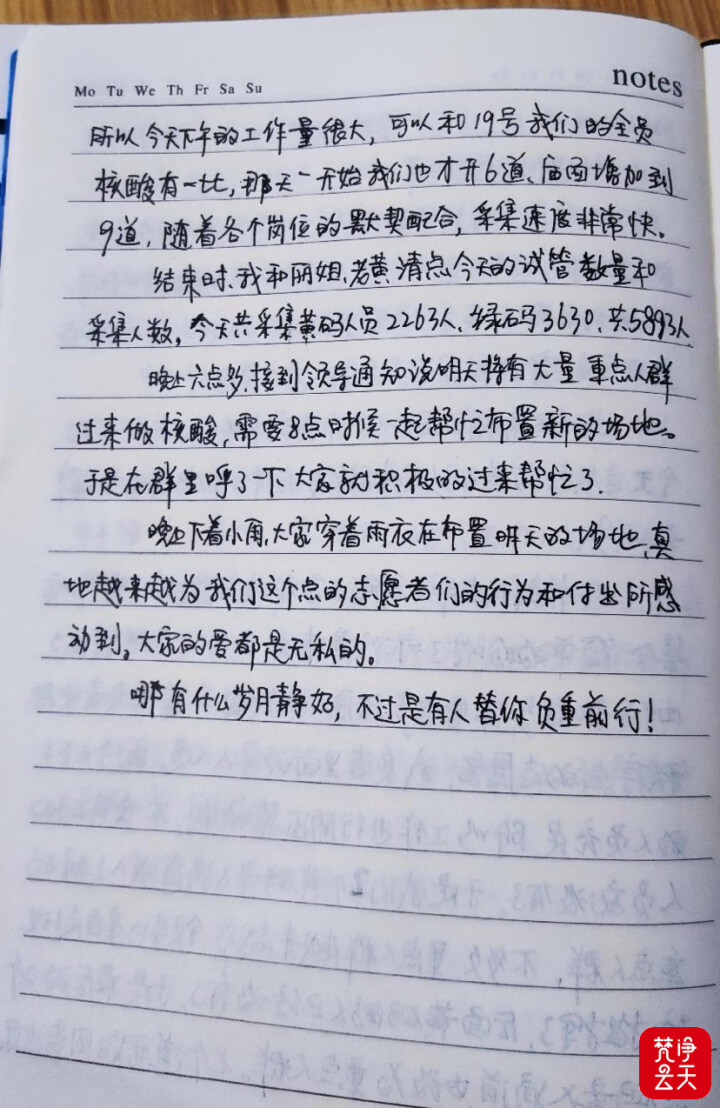 Mo Tu We Th Fr Sa Su
notes
所以今天下午的工作量很大,可以和19号我们的全员
核酸有一比,那天一开始我们也才开6道、后面增加到
9道,随着各个岗位的默契配合,采集速度非常快。
结束时、我和丽姐、老黄清点今天的试管数量和
采集人数,今天共采集黄码人员2263人、绿码3630、共5893人
晚上六点多,接到领导通知说明天将有大量重点人群
过来做核酸,需要8点时候一起帮忙布置新的场地。
于是在群里呼了一下大家就积极的过来帮忙了.
晚上下着小雨,大家穿着雨衣在布置明天的场地,真
地越来越为我们这个点的志愿者们的行为和付出所感
动到。大家的爱都是无私的。
哪有什么岁月静好,不过是有人替你负重前行!
梵净
云天